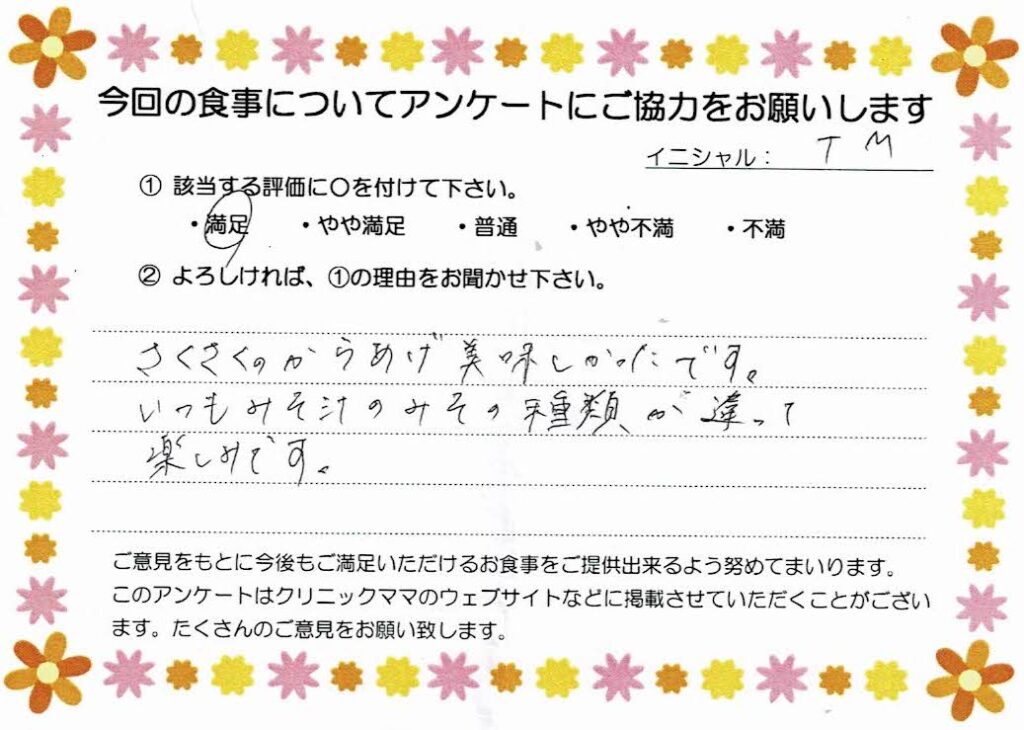 今回の食事についてアンケートにご協力をお願いします
イニシャル： T M
① 該当する評価に〇を付けて下さい。
・満足 ・やや満足 ・普通 ・やや不満 ・不満
② よろしければ、①の理由をお聞かせ下さい。
さくさくのからあげ美味しかったです。
いつもみそ汁のみその種類が違って
楽しみです。
ご意見をもとに今後もご満足いただけるお食事をご提供出来るよう努めてまいります。
このアンケートはクリニックママのウェブサイトなどに掲載させていただくことがござい
ます。たくさんのご意見をお願い致します。